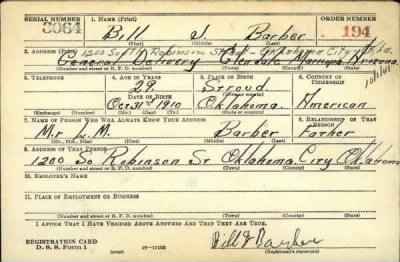 SERIAL NUMBER 1. NAME (Print) ORDER NUMBER
3064 Bill J. Barber 194
(First) (Middle) (Last)
2. ADDRESS (Print) 1200 South Robinson Oklahoma City Okla.
General Delivery Glendale Maricopa Arizona
(Number and street or R. F. D. number) (Town) (County) (State)
3. TELEPHONE 4. AGE IN YEARS 5. PLACE OF BIRTH 6. COUNTRY OF CITIZENSHIP
29 Stroud
DATE OF BIRTH (Town or county)
Oct 31st 1910 Oklahoma American
(Exchange) (No.) (Mo.) (Day) (Yr.) (State or country)
7. NAME OF PERSON WHO WILL ALWAYS KNOW YOUR ADDRESS 8. RELATIONSHIP OF THAT PERSON
Mr L. M. Barber Father
(Mr., Mrs., Miss) (First) (Middle) (Last)
9. ADDRESS OF THAT PERSON
1200 So Robinson St Oklahoma City Oklahoma
(Number and street or R. F. D. number) (Town) (County) (State)
10. EMPLOYER'S NAME
11. PLACE OF EMPLOYMENT OR BUSINESS
(Number and street or R. F. D. number) (Town) (County) (State)
I AFFIRM THAT I HAVE VERIFIED ABOVE ANSWERS AND THAT THEY ARE TRUE.
REGISTRATION CARD Bill J Barber
D. S. S. Form 1 (over) (Registrant's signature)